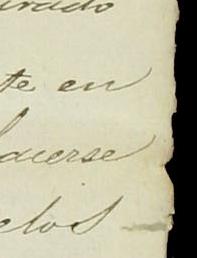 urado
te en
lacerse
elos